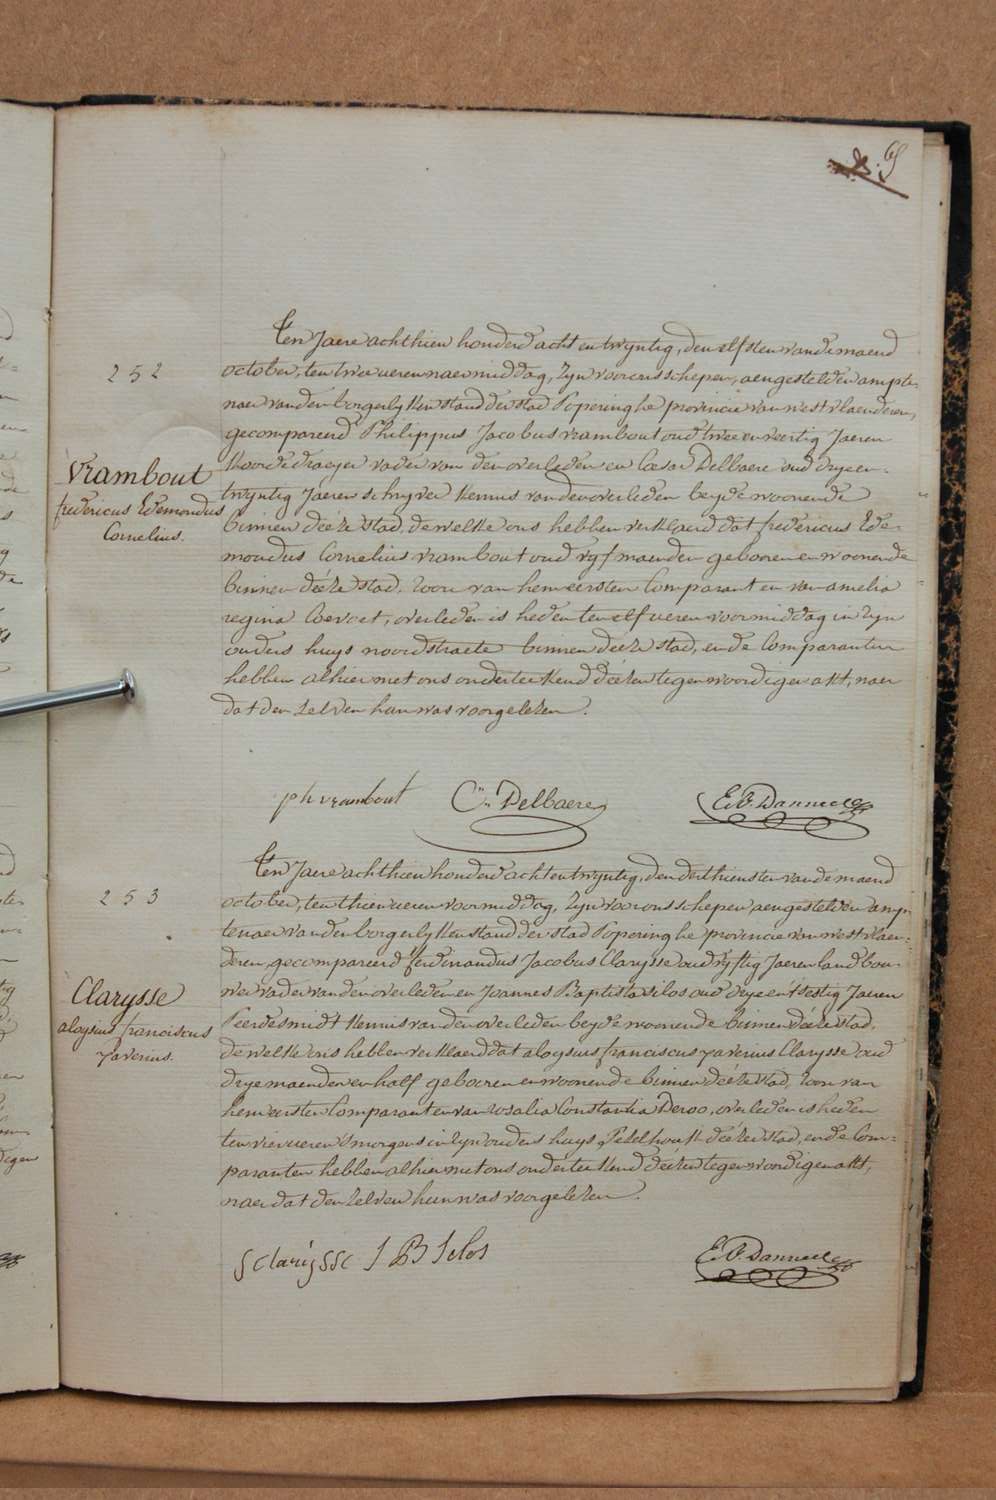 252
Vrambout
fredericus Edemondus
Cornelius.
Ten Jaere achthien honderd acht en twyntig, den elfsten van de maend
october, ten twee ueren naermiddag, Zyn voor ons schepen, aengestelden ampte-
naer van den borgerlyken stand der stad Poperinghe provincie van westvlaenderen,
gecompareerd Philippus Jacobus vrambout oud twee en veertig Jaeren
koordedraeyer vader van den overleden en Cæsar Delbaere oud drye en-
twyntig Jaeren schryver kennis van den overleden beyde woonende
binnen deéze stad, dewelke ons hebben verklaerd dat fredericus Ede-
mondus Cornelius vrambout oud vyf maenden geboren en woonende
binnen deéze stad, zoon van hem eersten Comparant en van amelia
regina Coevoet, overleden is heden ten elf ueren voormiddag in zyn
ouders huys noordstraete binnen deeze stad, en de Comparanten
hebben alhier met ons onderteekend deézen tegenwoordigen akt, naer
dat den zelven hun was voorgelezen.
ph vrambout Cn. Delbaere E. V. Danneel
253
Clarysse
aloysius franciscus
xaverius.
Ten Jaere achthien honderd acht en twyntig, den derthiensten van de maend
october, ten thien ueren voormiddag, Zyn voor ons schepen, aengestelden amp-
tenaer van den borgerlyken stand der stad Poperinghe provincie van westvlaen-
deren, gecompareerd ferdinandus Jacobus Clarysse oud vyftig Jaeren landbou-
wer vader van den overleden en Joannes Baptista Silos oud drye en t'sestig Jaeren
Peerdesmidt kennis van den overleden beyde woonende binnen deéze stad,
dewelke ons hebben verklaerd dat aloysius franciscus xaverius Clarysse oud
drye maenden en half geboren en woonende binnen deéze stad, zoon van
hem eersten Comparant en van rosalia Constantia Deroo, overleden is heden
ten vier ueren s'morgens in zyn ouders huys deézer stad, en de Com-
paranten hebben alhier met ons onderteekend deezen tegenwoordigen akt,
naer dat den zelven hun was voorgelezen.
f clarysse J B Silos E. V. Danneel